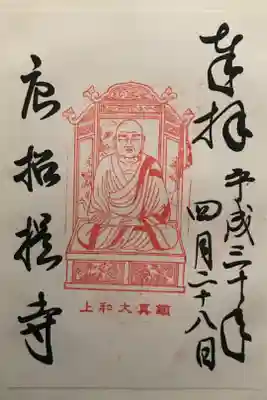 奉拝
平成三十年
四月二十八日
鑑真大和上
唐招提寺